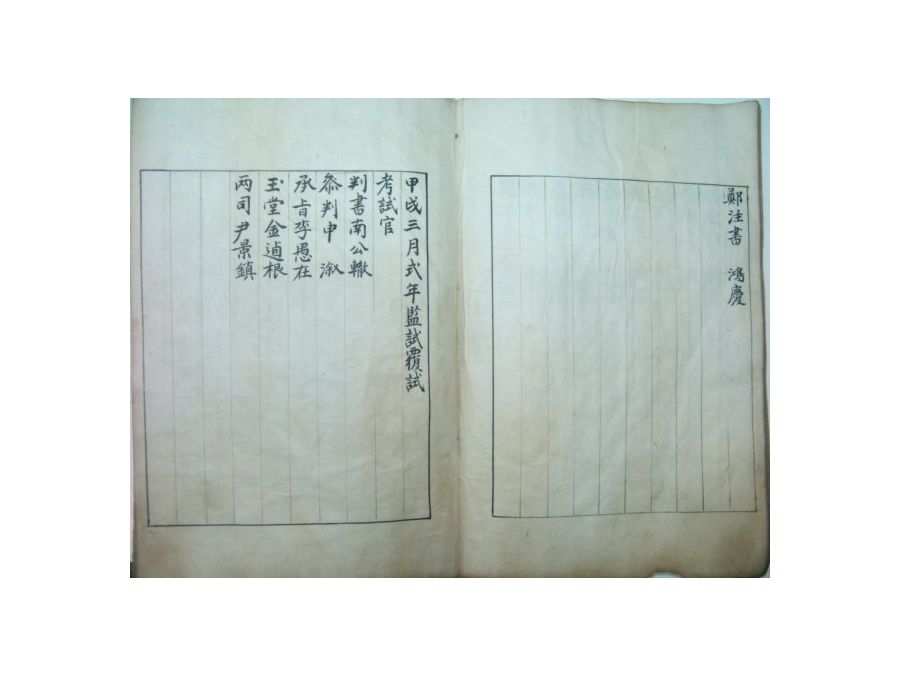 鄭注書 鴻慶
甲戌三月式年監試覆試
考試官
判書南公轍
叅判申 溆
承旨李愚在
玉堂金逌根
两司尹景鎮